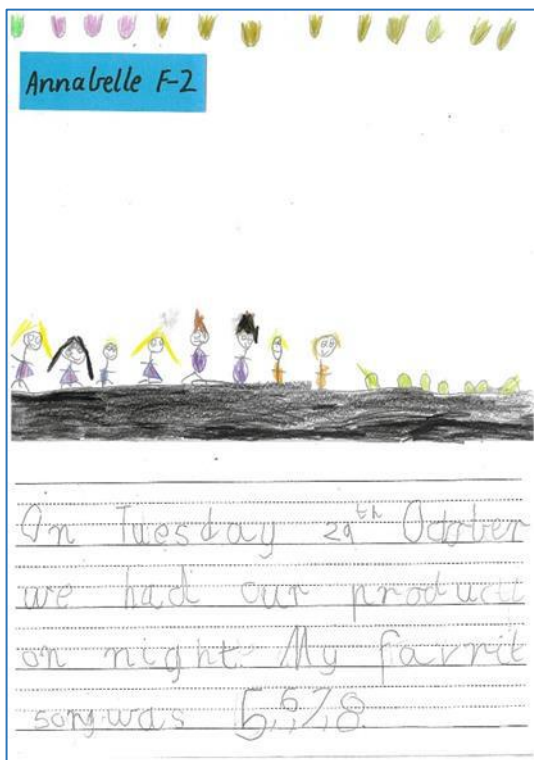 Annabelle F-2
On Tuesday 29th October
we had our producti
on night. My favrit
song was 5,6,7,8.